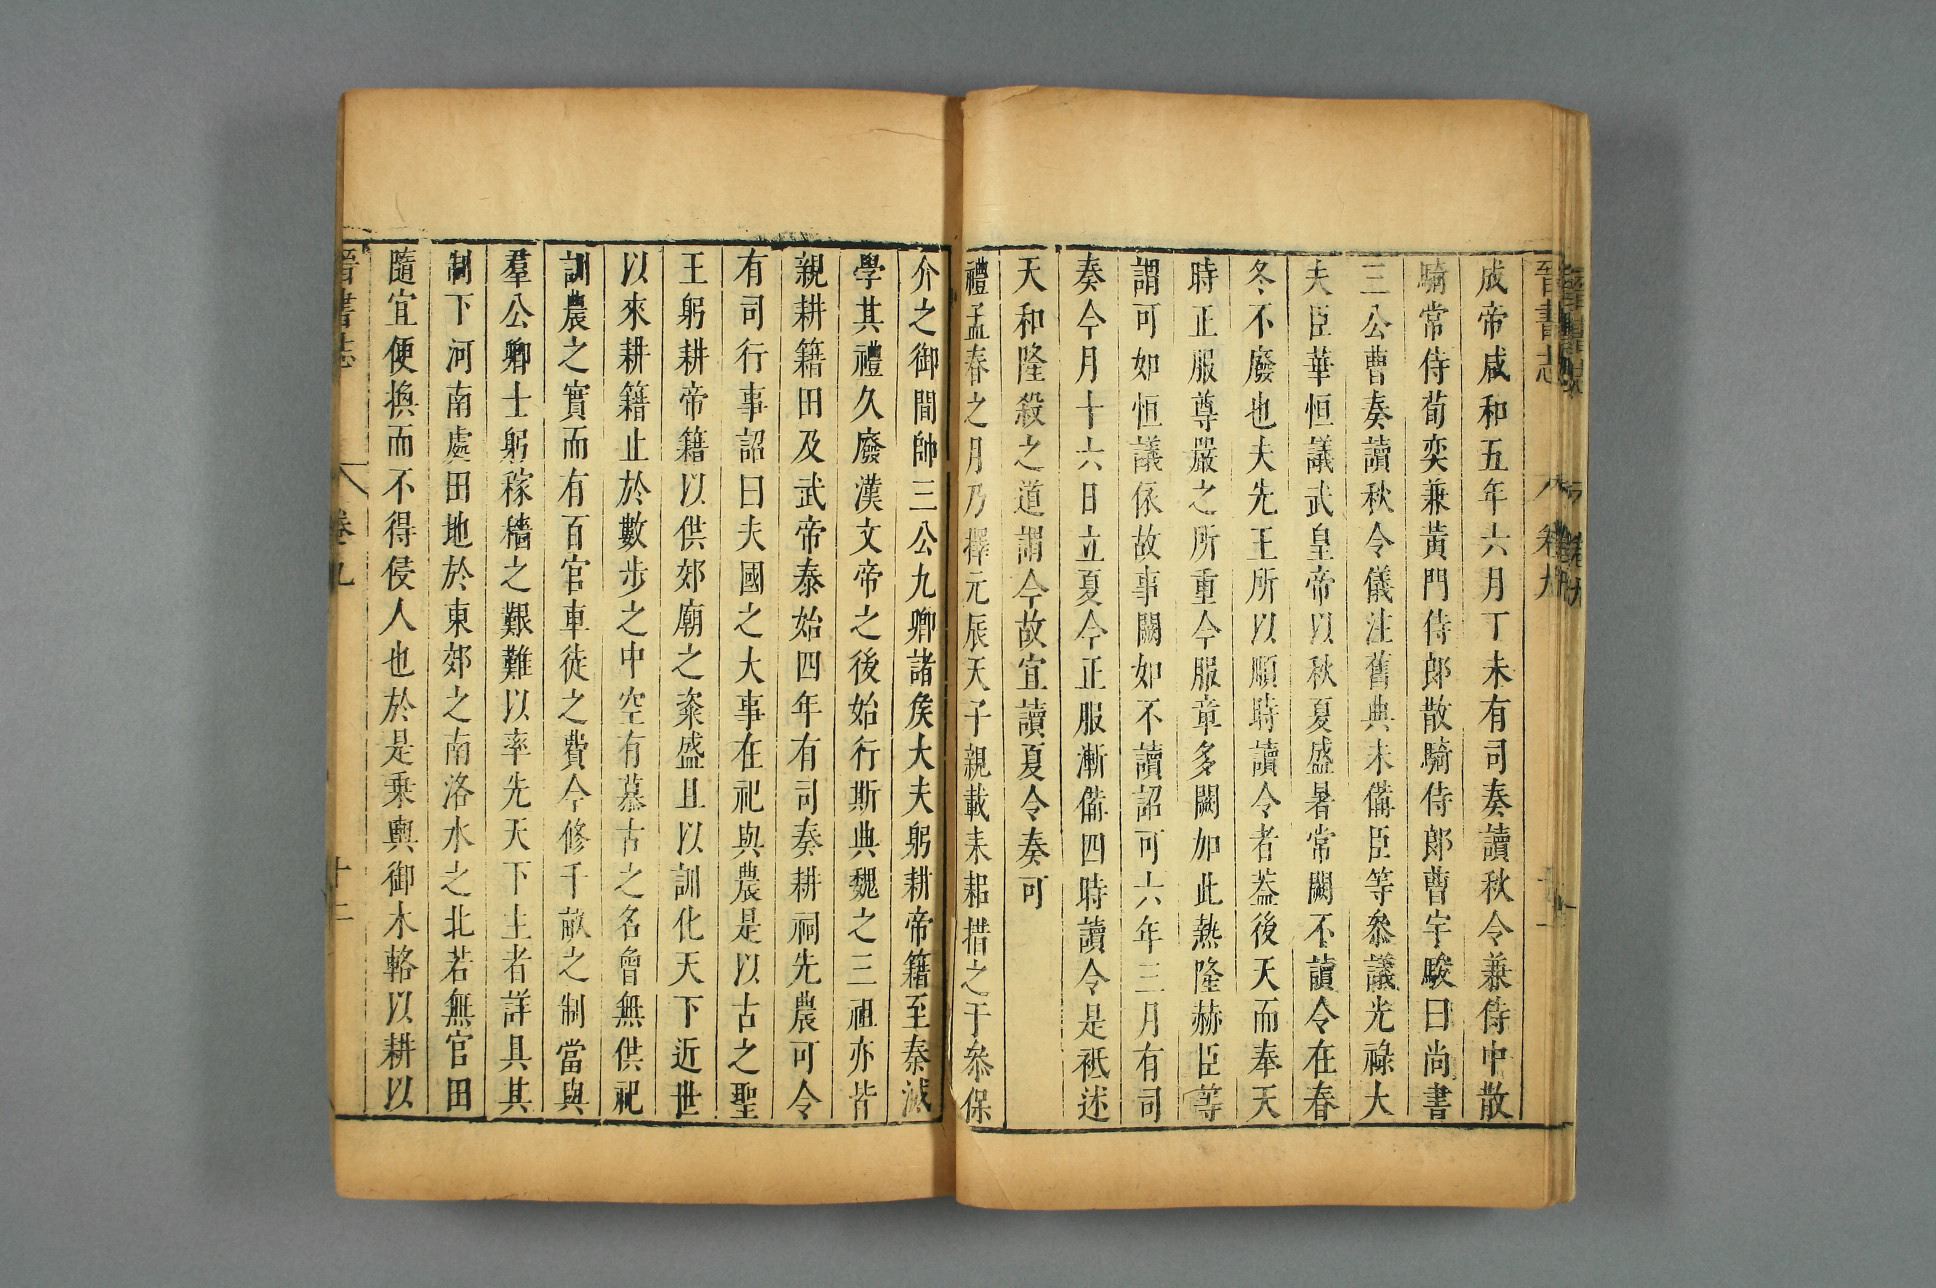 晉書志 卷九
成帝咸和五年六月丁未有司奏讀秋令兼侍中散
騎常侍荀奕兼黃門侍郎散騎侍郎曹宇駿曰尚書
三公曹奏讀秋令儀注舊典未備臣等叅議光祿大
夫臣華恒議武皇帝以秋夏盛暑常闕不讀令在春
冬不廢也夫先王所以順時讀令者葢後天而奉天
時正服尊嚴之所重今服章多闕加此熱隆赫臣等
謂可如恒議依故事闕如不讀詔可六年三月有司
奏今月十六日立夏今正服漸備四時讀令是祗述
天和隆殺之道謂今故宜讀夏令奏可
禮孟春之月乃擇元辰天子親載耒耜措之于叅保
介之御間帥三公九卿諸矦大夫躬耕帝籍至秦滅
學其禮久廢漢文帝之後始行斯典魏之三祖亦皆
親耕籍田及武帝泰始四年有司奏耕祠先農可令
有司行事詔曰夫國之大事在祀與農是以古之聖
王躬耕帝籍以供郊廟之粢盛且以訓化天下近世
以來耕籍止於數步之中空有慕古之名曾無供祀
訓農之實而有百官車徒之費今修千畝之制當與
羣公卿士躬稼穡之艱難以率先天下主者詳具其
制下河南處田地於東郊之南洛水之北若無官田
隨宜便換而不得侵人也於是乗輿御木輅以耕以
晉書志 卷九 十二